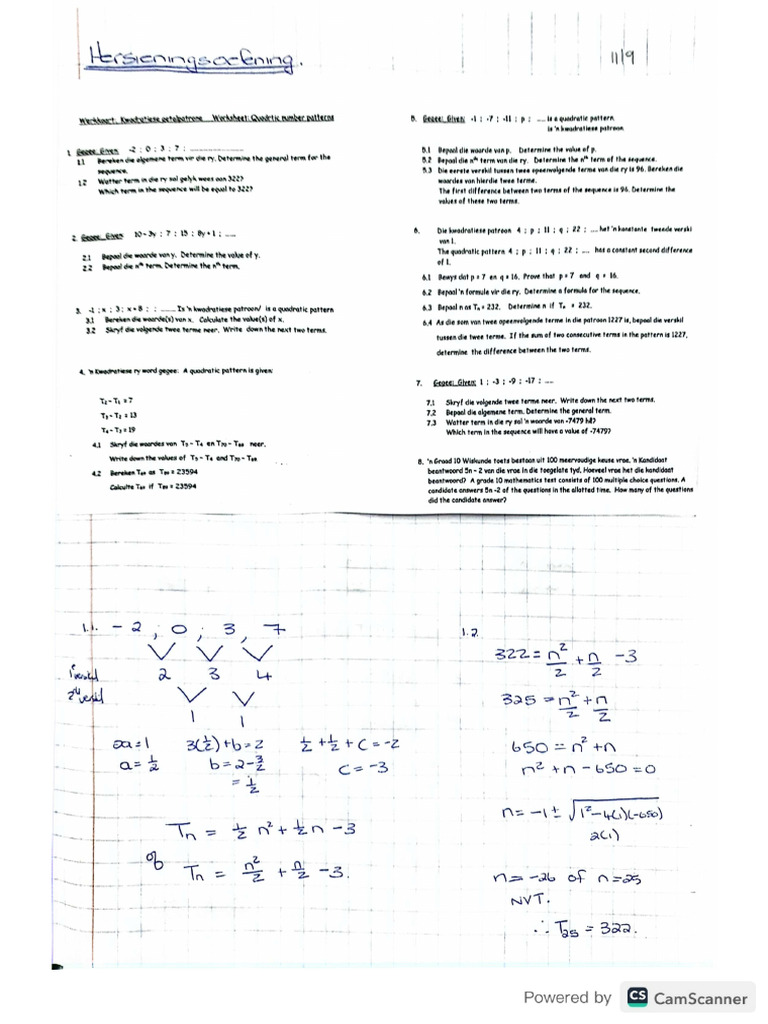 Hersieningsoefening.
11/9
Werkkaart: Kwadratiese getalpatrone Worksheet: Quadrtic number patterns
1. Gegee: Given: -2 ; 0 ; 3 ; 7 ; ..........
1.1 Bereken die algemene term vir die ry. Determine the general term for the
sequence.
1.2 Watter term in die ry sal gelyk wees aan 322?
Which term in the sequence will be equal to 322?
2. Gegee: Given: 10 - 3y ; 7 ; 15 ; 8y + 1 ; ......
2.1 Bepaal die waarde van y. Determine the value of y.
2.2 Bepaal die nth term. Determine the nth term.
3. -1 ; x ; 3 ; x + 8 ; : ........ Is 'n kwadratiese patroon/ is a quadratic pattern
3.1 Bereken die waarde(s) van x. Calculate the value(s) of x.
3.2 Skryf die volgende twee terme neer. Write down the next two terms.
4. 'n Kwadratiese ry word gegee: A quadratic pattern is given:
T2 - T1 = 7
T3 - T2 = 13
T4 - T3 = 19
4.1 Skryf die waardes van T5 - T4 en T70 - T69 neer.
Write down the values of T5 - T4 and T70 - T69.
4.2 Bereken T69 as T89 = 23594
Calculte T69 if T89 = 23594
5. Gegee: Given: -1 ; -7 ; -11 ; p ; ..... is a quadratic pattern.
is 'n kwadratiese patroon
5.1 Bepaal die waarde van p. Determine the value of p.
5.2 Bepaal die nth term van die ry. Determine the nth term of the sequence.
5.3 Die eerste verskil tussen twee opeenvolgende terme van die ry is 96. Bereken die
waardes van hierdie twee terme.
The first difference between two terms of the sequence is 96. Determine the
values of these two terms.
6. Die kwadratiese patroon 4 ; p ; 11 ; q ; 22 ; .... het 'n konstante tweede verskil
van 1.
The quadratic pattern 4 ; p ; 11 ; q ; 22 ; .... has a constant second difference
of 1.
6.1 Bewys dat p = 7 en q = 16. Prove that p = 7 and q = 16.
6.2 Bepaal 'n formule vir die ry. Determine a formula for the sequence.
6.3 Bepaal n as Tn = 232. Determine n if Tn = 232.
6.4 As die som van twee opeenvolgende terme in die patroon 1227 is, bepaal die verskil
tussen die twee terme. If the sum of two consecutive terms in the pattern is 1227,
determine the difference between the two terms.
7. Gegee: Given: 1 ; -3 ; -9 ; -17 ; ....
7.1 Skryf die volgende twee terme neer. Write down the next two terms.
7.2 Bepaal die algemene term. Determine the general term.
7.3 Watter term in die ry sal 'n waarde van -7479 hê?
Which term in the sequence will have a value of -7479?
8. 'n Graad 10 Wiskunde toets bestaan uit 100 meervoudige keuse vrae. 'n Kandidaat
beantwoord 5n - 2 van die vrae in die toegelate tyd. Hoeveel vrae het die kandidaat
beantwoord? A grade 10 mathematics test consists of 100 multiple choice questions. A
candidate answers 5n -2 of the questions in the allotted time. How many of the questions
did the candidate answer?
1.1. -2 ; 0 ; 3 ; 7
1e verskil 2 3 4
2de verskil 1 1
2a=1 3(½)+b=2 ½+½+c=-2
a=½ b=2-3/2 c=-3
=½
Tn = ½n²+½n-3
of
Tn = n²/2 + n/2 - 3.
1.2.
322 = n²/2 + n/2 - 3
325 = n²/2 + n/2
650 = n²+n
n²+n-650=0
n = -1 ± √1²-4(1)(-650)
2(1)
n=-26 of n=25
NVT.
∴ T25 = 322.
Powered by CS CamScanner